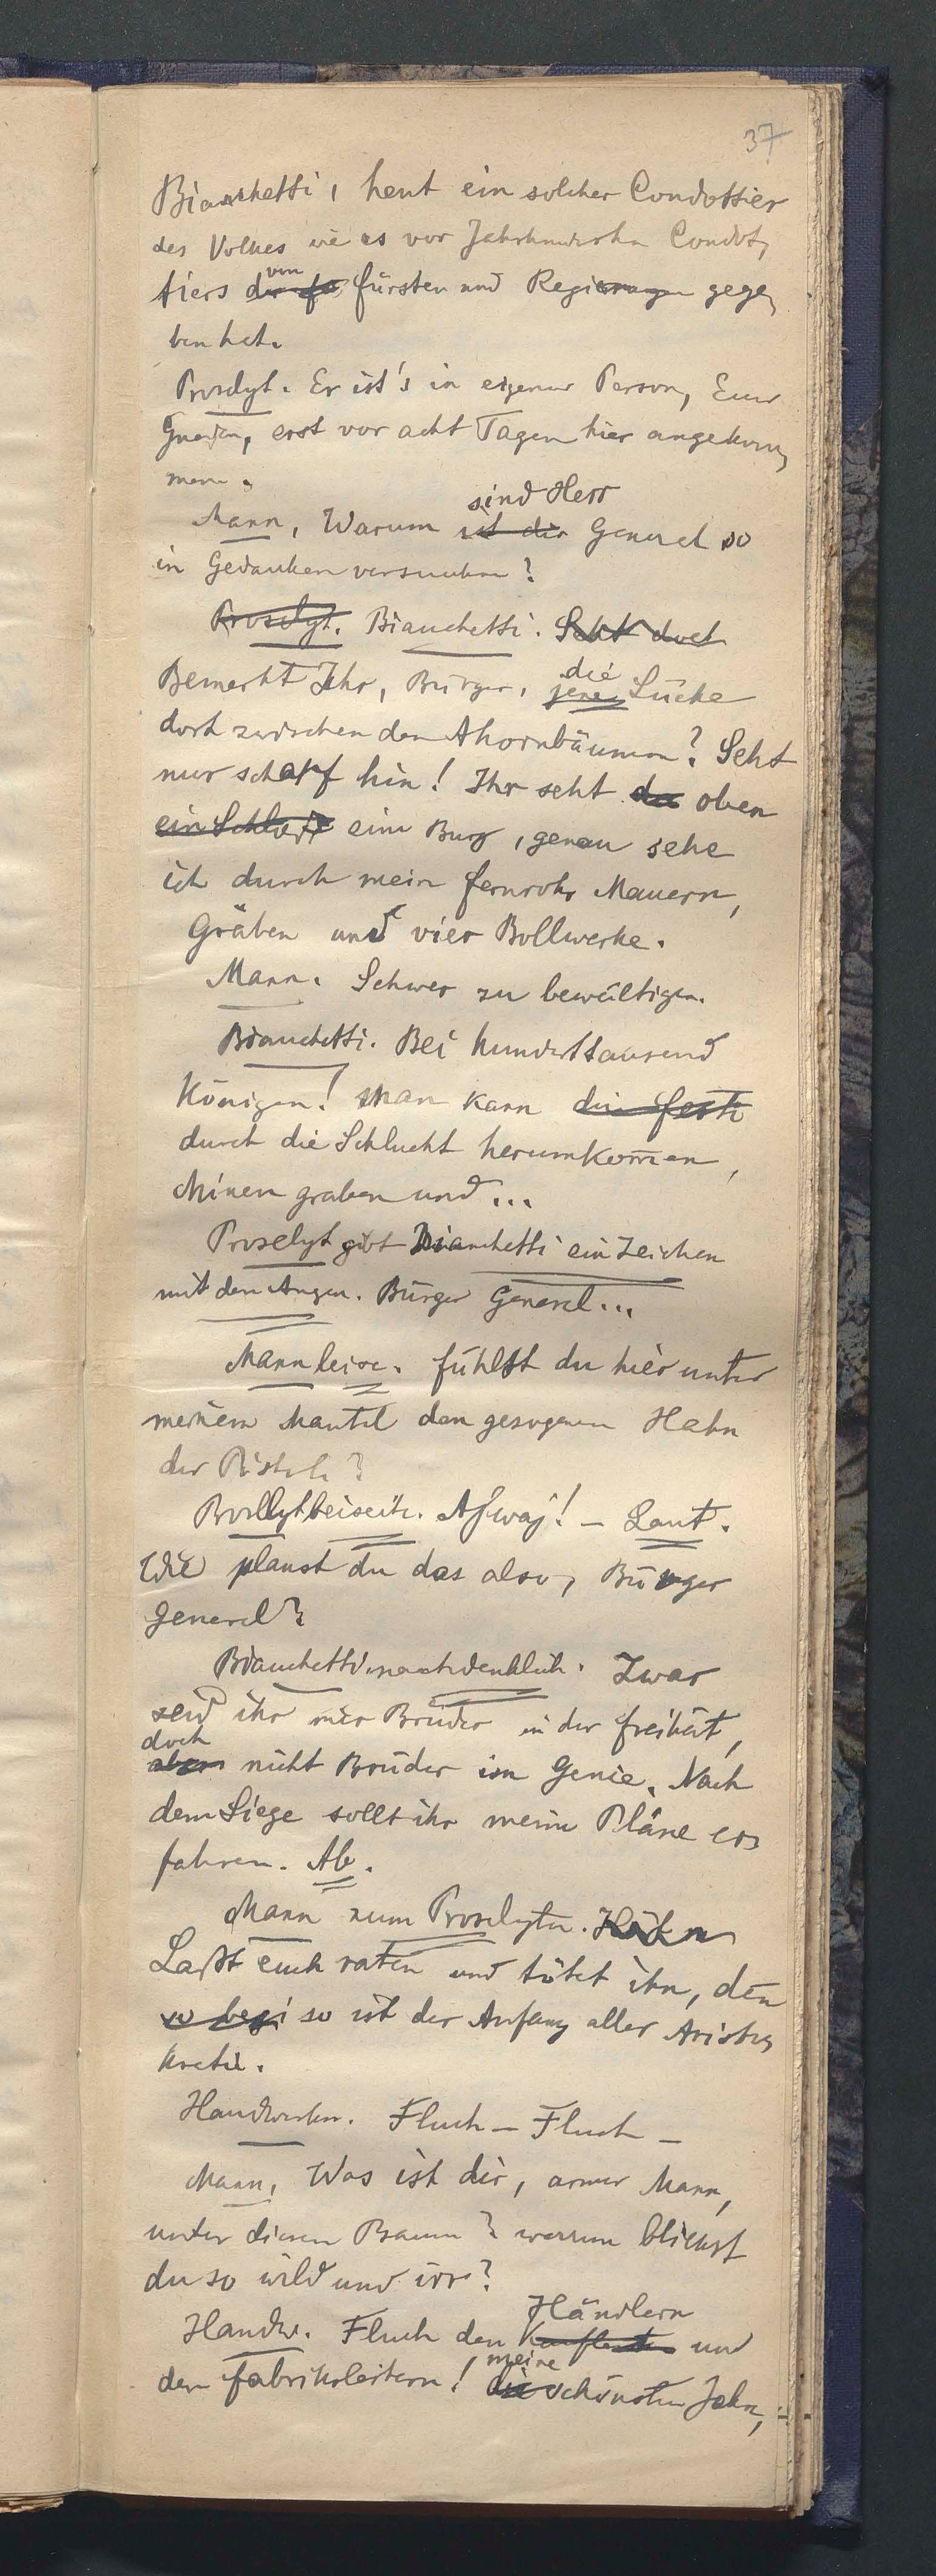 37
Bianchetti, heut ein solcher Condottier
des Volkes wie es vor Jahrhunderten Condot,
von
tiers der fü fürsten und Regierungen gege,
ben hat.
Proselyt. Er ist's in eigener Person, Euer
Gnaden, erst vor acht Tagen hier angekom,
men.
sind Herr
Mann, Warum ist der General so
in Gedanken versunken?
Proselyt. Bianchetti. Seht dort
die
Bemerkt Ihr, Bürger, jene Lücke
dort zwischen den Ahornbäumen? Seht
nur scharf hin! Ihr seht da oben
ein Schloß eine Burg, genau sehe
ich durch mein Fernrohr Mauern,
Gräben und vier Bollwerke.
Mann. Schwer zu bewältigen.
Bianchetti. Bei hunderttausend
Königen! Man kann die feste
durch die Schlucht herumkom̄en,
Minen graben und ...
Proselyt gibt Bianchetti ein Zeichen
mit den Augen. Bürger General...
Mann leise. fühlst du hier unter
meinem Mantel den gezogenen Hahn
der Pistole?
Proselyt beiseite. Ajwaj! – Laut.
Wie planst du das also, Bürger
General?
Bianchetti nachdenklich. Zwar
seid ihr mir Brüder in der freiheit,
doch
aber nicht Brüder im Genie. Nach
dem Siege sollt ihr meine Pläne er,
fahren. Ab.
Mann zum Proselyten.
Laßt euch raten und tötet ihn, den̄
so begi so ist der Anfang aller Aristo,
kratie.
Handwerker. Fluch – Fluch –
Mann, Was ist dir, armer Mann,
unter diesem Baum? warum blickst
du so wild und irr?
Händlern
Handw. Fluch den Kaufleuten und
meine
den fabriksleitern! die schönsten Jahr,